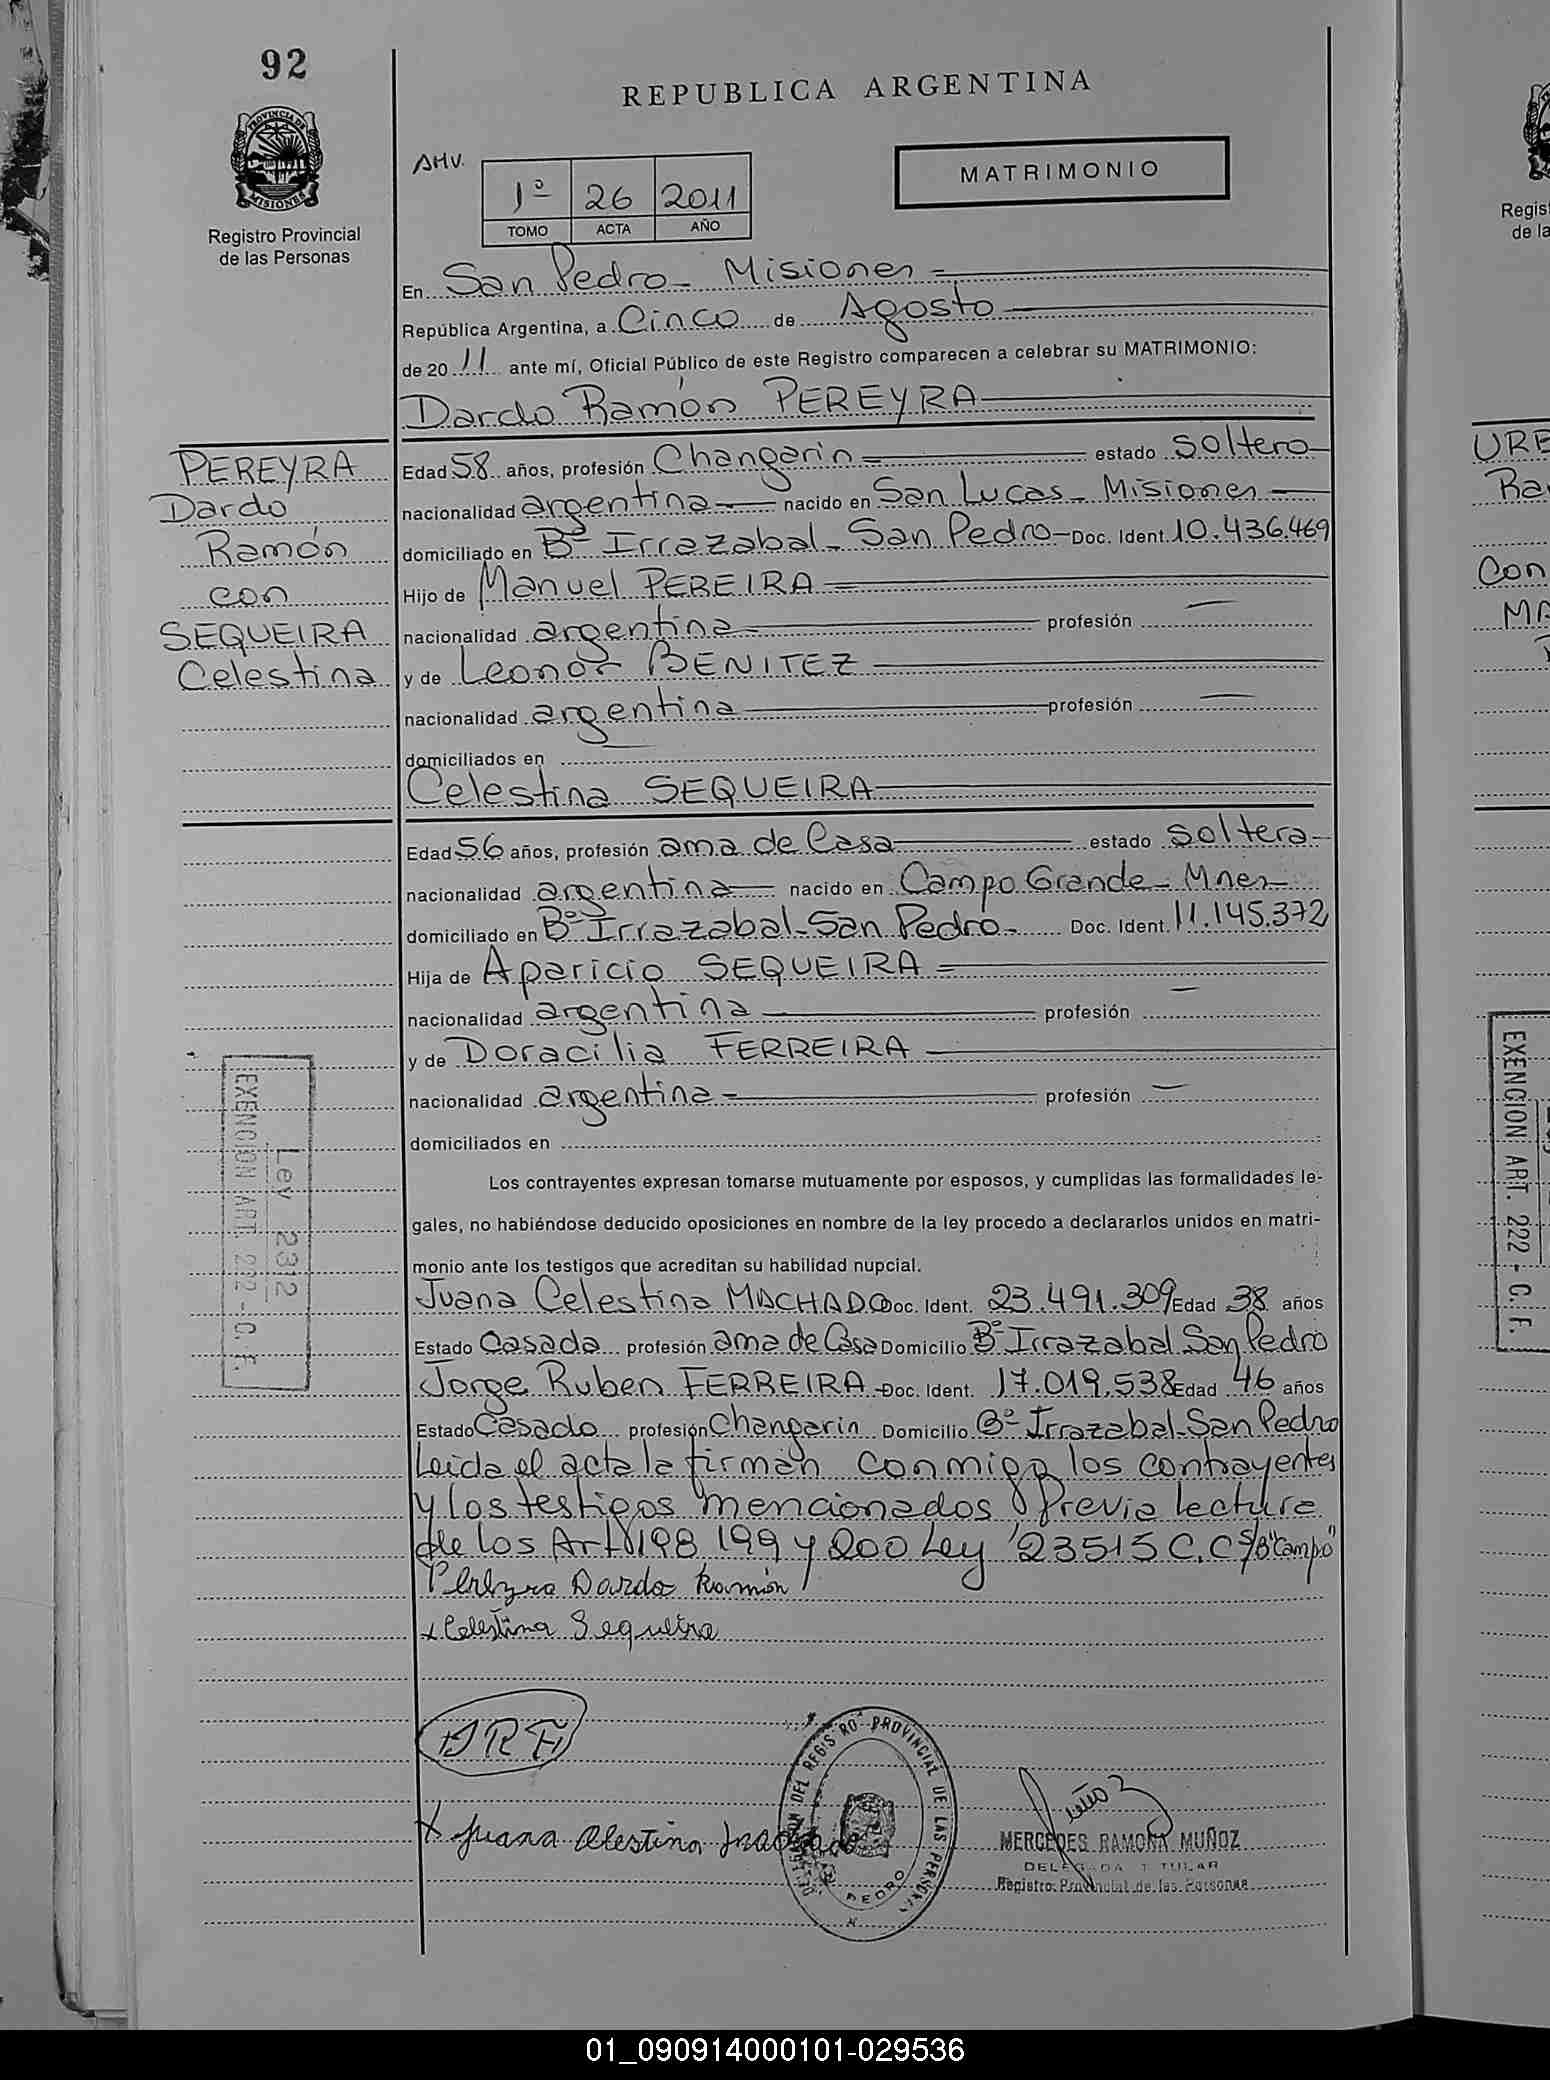 92
REPUBLICA ARGENTINA
PROVINCIA DE
MISIONES
Registro Provincial
de las Personas
AHV.
1º 26 2011
TOMO ACTA AÑO
MATRIMONIO
En San Pedro - Misiones
República Argentina, a Cinco de Agosto
de 20 11 ante mí, Oficial Público de este Registro comparecen a celebrar su MATRIMONIO:
Dardo Ramón PEREYRA
PEREYRA
Dardo
Ramón
con
SEQUEIRA
Celestina
Edad 58 años, profesión Changarin estado soltero
nacionalidad argentina nacido en San Lucas - Misiones
domiciliado en Bº Irrazabal - San Pedro - Doc. Ident. 10.436.469
Hijo de Manuel PEREIRA
nacionalidad argentina profesión —
y de Leonor BENITEZ
nacionalidad argentina profesión —
domiciliados en —
Celestina SEQUEIRA
Edad 56 años, profesión ama de Casa estado soltera
nacionalidad argentina nacido en Campo Grande - Mnes
domiciliado en Bº Irrazabal - San Pedro - Doc. Ident. 11.145.372
Hija de Aparicio SEQUEIRA
nacionalidad argentina profesión —
y de Doracilia FERREIRA
nacionalidad argentina profesión —
domiciliados en
Ley 2312
EXENCION ART. 222 - C. F.
Los contrayentes expresan tomarse mutuamente por esposos, y cumplidas las formalidades le-
gales, no habiéndose deducido oposiciones en nombre de la ley procedo a declararlos unidos en matri-
monio ante los testigos que acreditan su habilidad nupcial.
Juana Celestina MACHADO Doc. Ident. 23.491.309 Edad 38 años
Estado Casada profesión ama de Casa Domicilio Bº Irrazabal San Pedro
Jorge Ruben FERREIRA - Doc. Ident. 17.019.538 Edad 46 años
Estado Casado profesión Changarin Domicilio Bº Irrazabal - San Pedro
Leida el acta la firman conmigo los contrayentes
y los testigos mencionados Previa lectura
de los Art 198 199 y 200 Ley 23515 C.C S/B "Campo"
Pereyra Dardo Ramón
x Celestina Sequeira
JRF
x Juana Celestina Machado
DELEGACION DEL REGISTRO PROVINCIAL DE LAS PERSONAS
PEDRO
MERCEDES RAMONA MUÑOZ
DELEGADA TITULAR
Registro Provincial de las Personas
Regist
de la
URB
Ra
Con
MA
EXENCION ART. 222 - C. F.
01_090914000101-029536